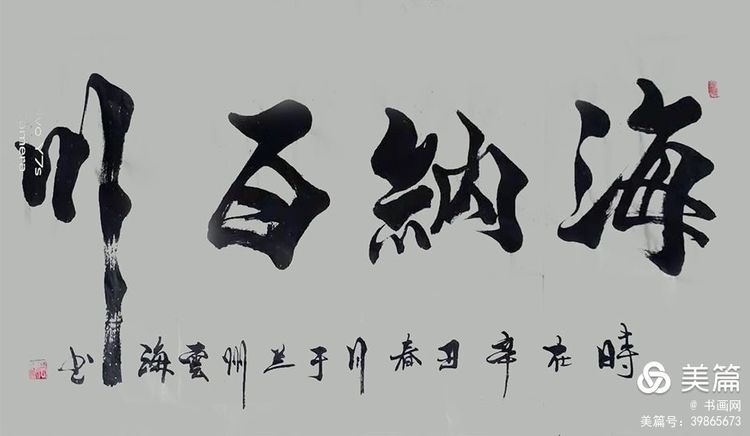 海納百川
時在辛丑春月于兰州雲海书
vivo Y7s
camera
美篇
@ 书画网
美篇号：39865673